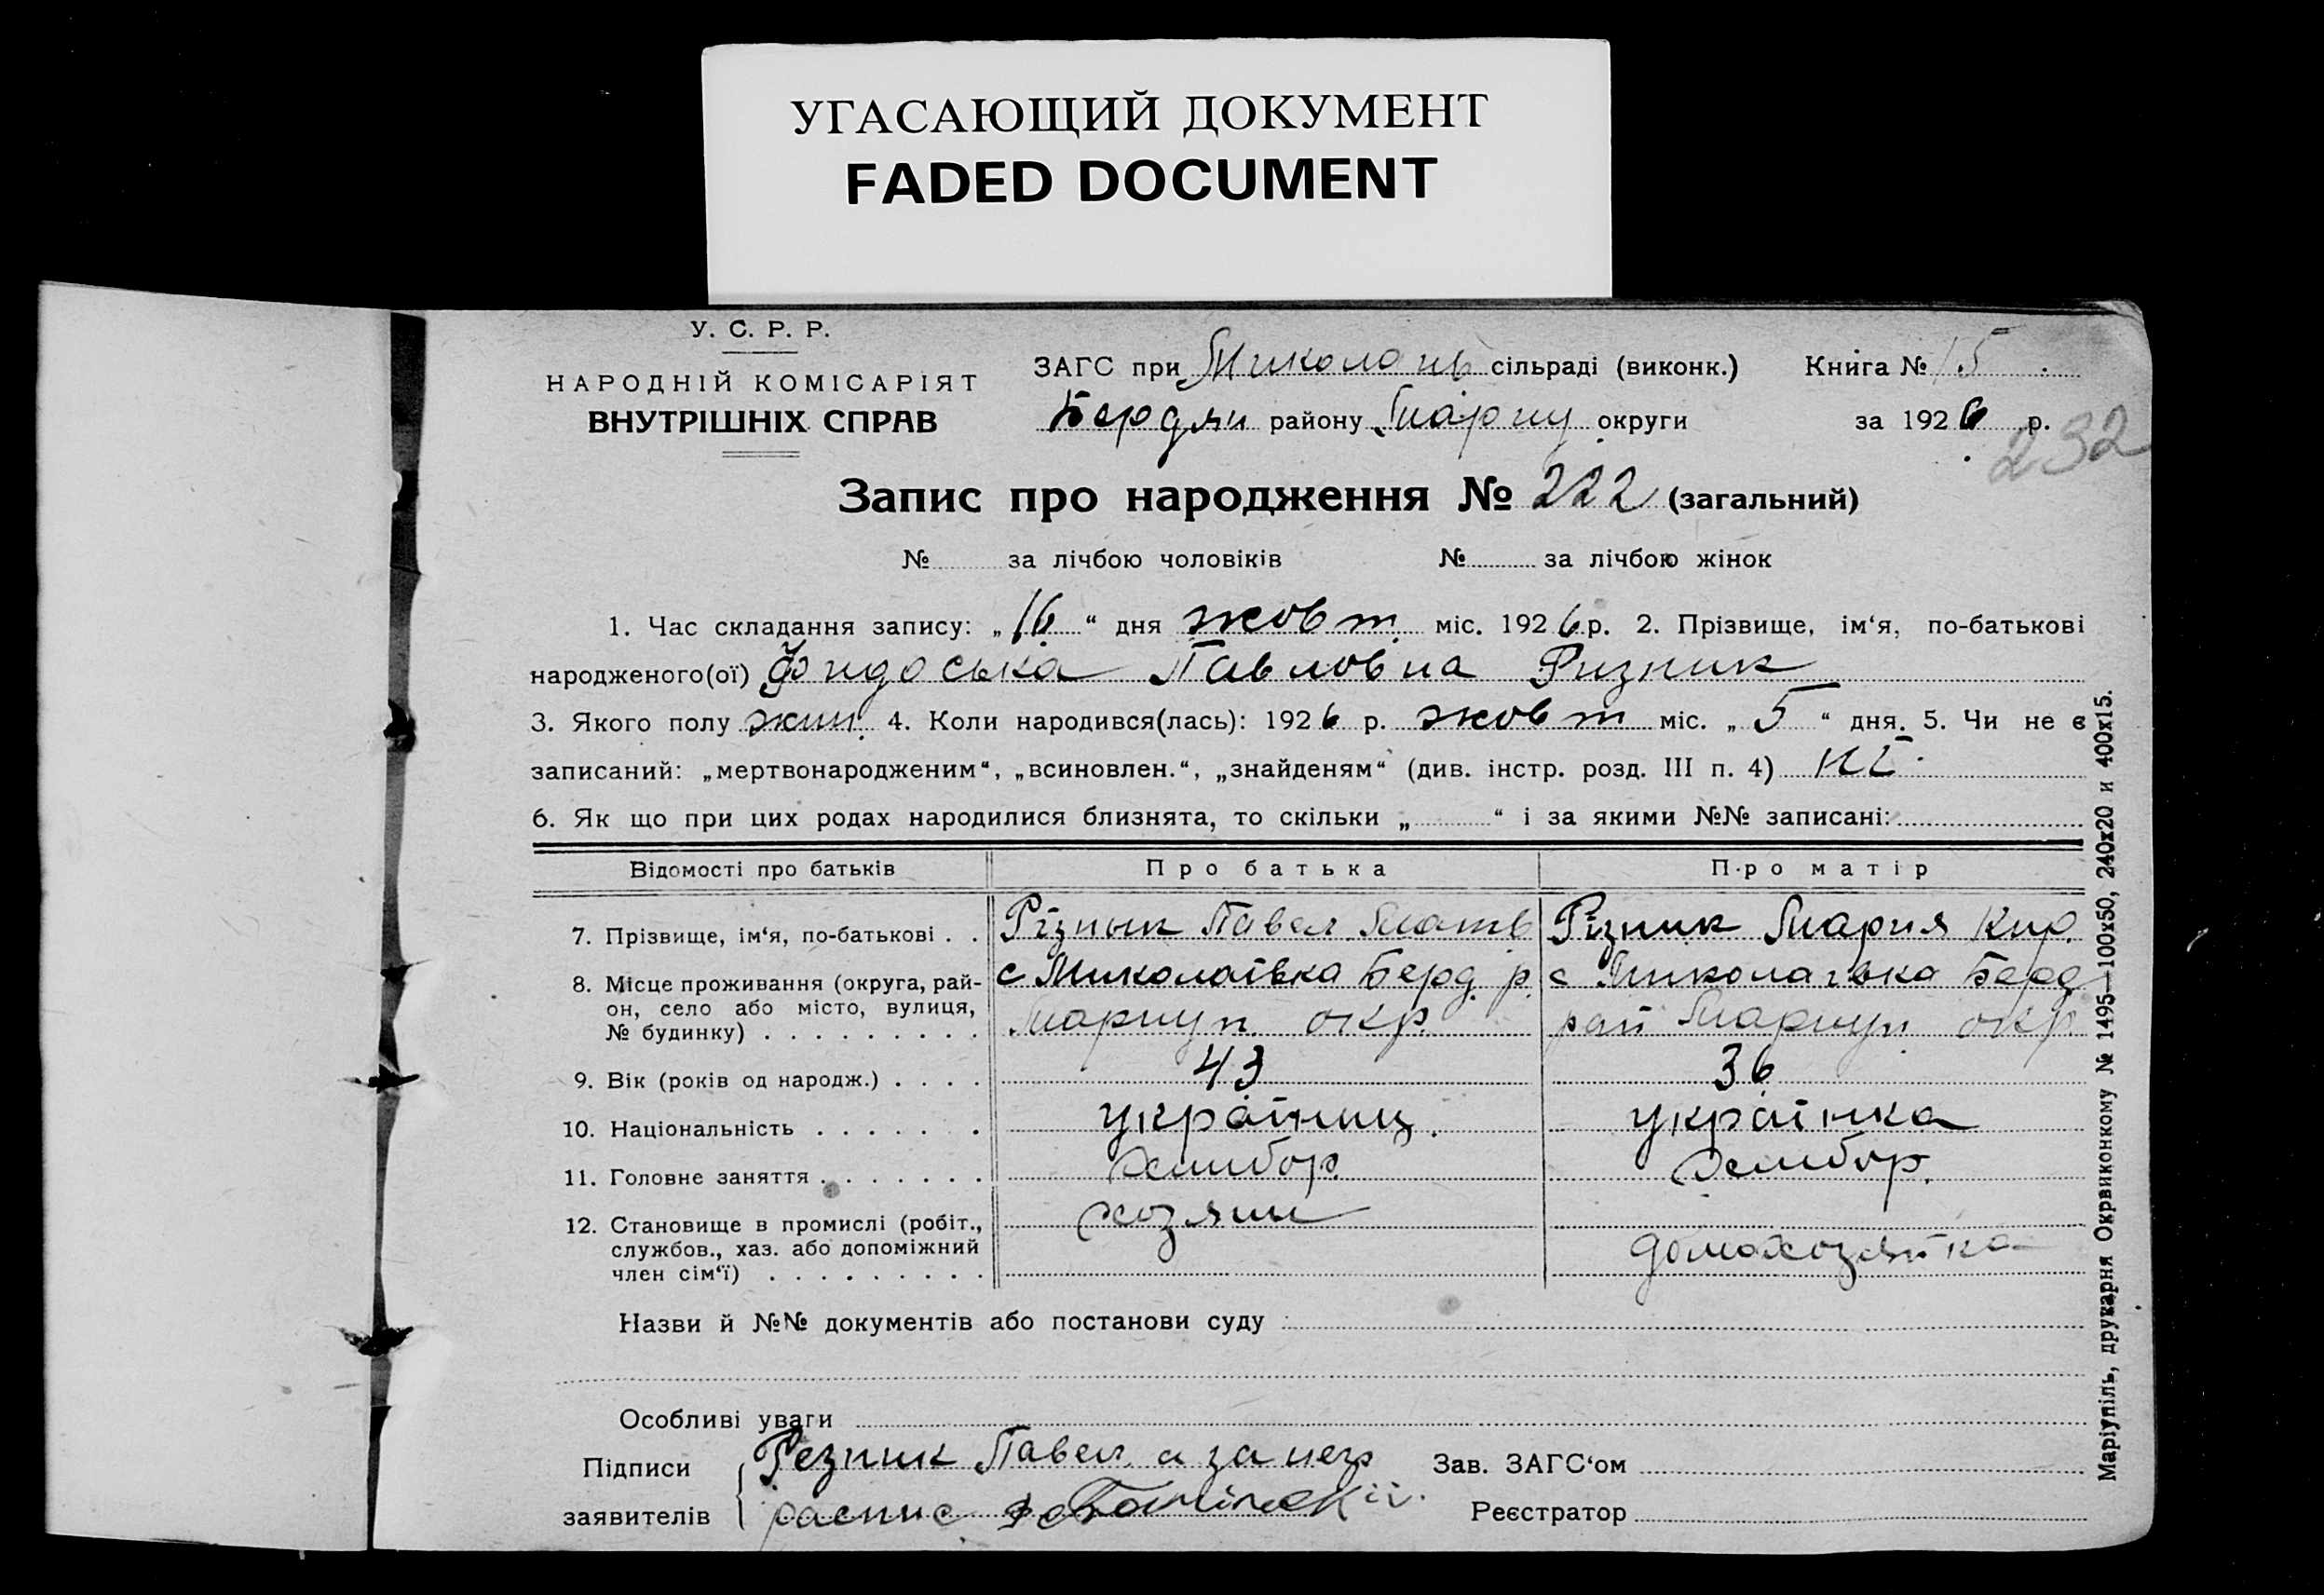 УГАСАЮЩИЙ ДОКУМЕНТ
FADED DOCUMENT
У. С. Р. Р.
НАРОДНІЙ КОМІСАРІЯТ
ВНУТРІШНІХ СПРАВ
ЗАГС при Миколаїв сільраді (виконк.) Книга № 15
Бердян району Маріу округи за 1926 р.
232
Запис про народження № 222 (загальний)
№ за лічбою чоловіків № за лічбою жінок
1. Час складання запису: „16“ дня жовт. міс. 1926 р. 2. Прізвище, ім‘я, по-батькові
народженого(ої) Фидоська Павловна Ризник
3. Якого полу жин. 4. Коли народився(лась): 1926 р. жовт міс. „5“ дня. 5. Чи не є
записаний: „мертвонародженим“, „всиновлен.“, „знайденям“ (див. інстр. розд. III п. 4) ні
6. Як що при цих родах народилися близнята, то скільки „ “ і за якими №№ записані:
Відомості про батьків Про батька Про матір
7. Прізвище, ім‘я, по-батькові . . Різнык Павел Матв Різник Мария Кир.
8. Місце проживання (округа, рай- с Миколаївка Берд. р. с Миколаївка Берд
он, село або місто, вулиця, Мариуп. окр. рай Мариуп. окр
№ будинку) . . . . . . . . .
9. Вік (років од народж.) . . . . 43 36
10. Національність . . . . . . українц. українка
11. Головне заняття . . . . . . . хлибор. хлибор.
12. Становище в промислі (робіт., хозяин
службов., хаз. або допоміжний домохозяйка
член сім‘ї) . . . . . . . . .
Назви й №№ документів або постанови суду
Особливі уваги
Підписи Резник Павел а за него Зав. ЗАГС‘ом
заявителів распис. Реєстратор
Маріупіль, друкарня Окрвиконкому № 1495—100х50, 240х20 и 400х15.